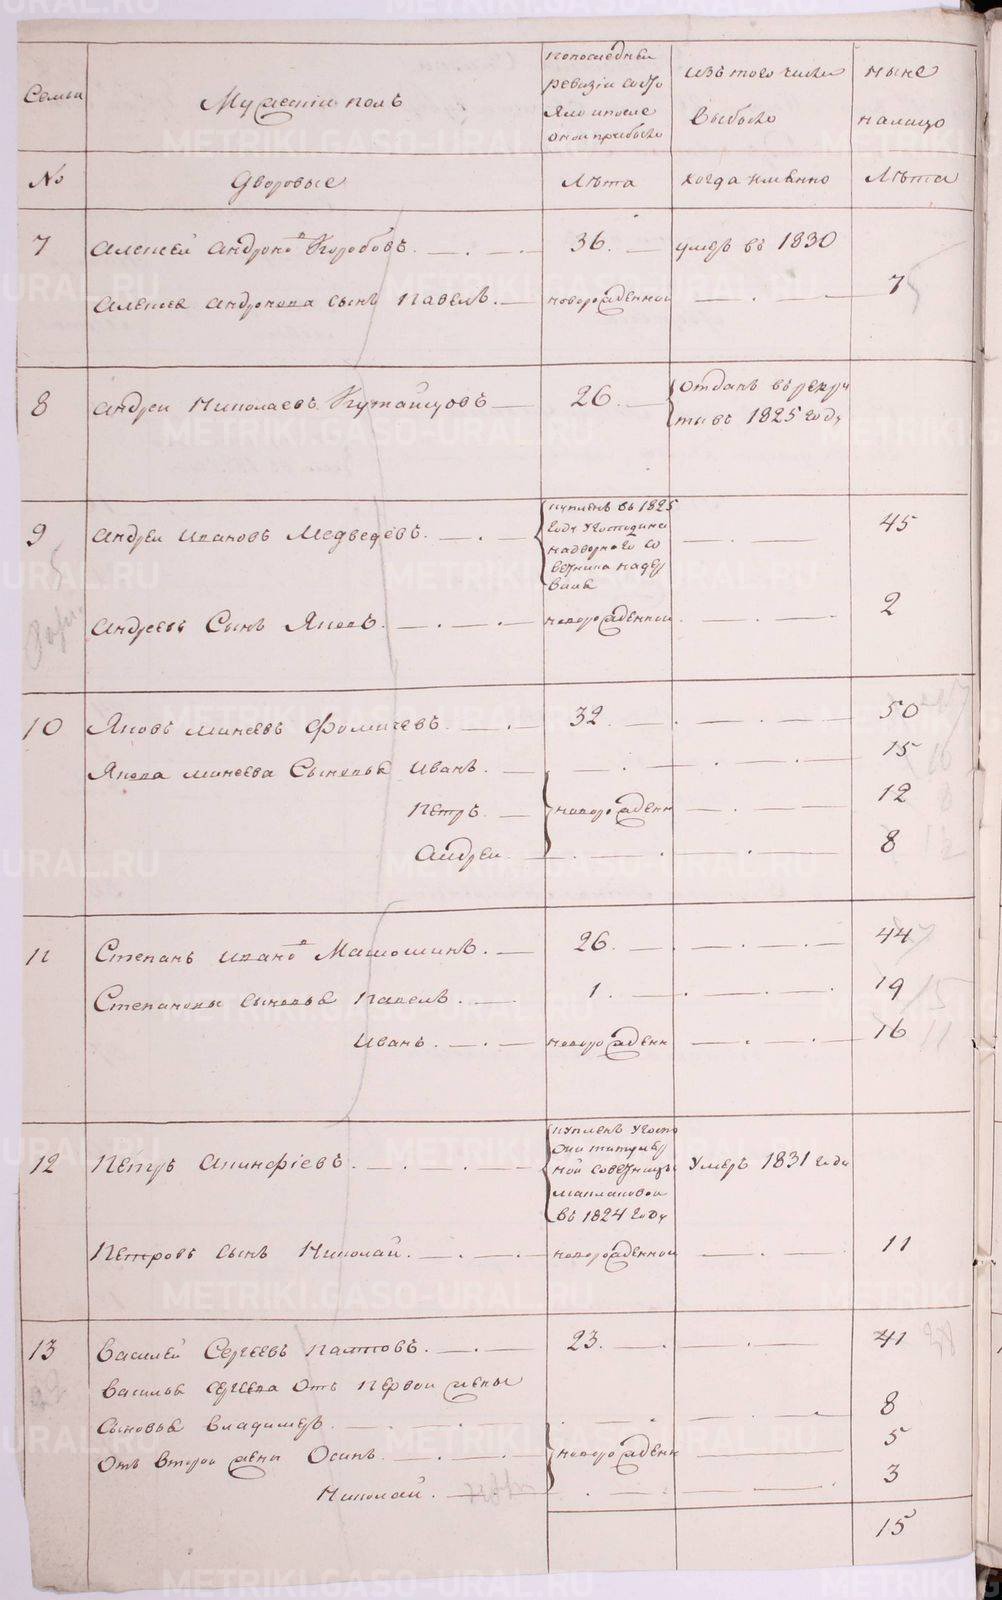 Семьи
Мужескiй полъ
по последней
ревизiи состо
яло и после
оной прибыло
изъ того числа
выбыло
ныне
на лицо
№
Дворовые
Лѣта
когда имянно
Лѣта
7
Алексей Андроно в Коробовъ.
36.
умеръ въ 1830
Алексея Андронова сынъ Павелъ.
новорожденной
7
8
Андреи Николаевъ
26.
отданъ въ рекру
ты въ 1825 году
9
Андреи Ивановъ Медведевъ.
купленъ въ 1825
году у Господина
надворного со
ветника
45
Андреевъ Сынъ Яковъ.
новорожденной
2
10
Яковъ Минеевъ Фомичевъ.
32.
50
Якова Минеева Сыновья Иванъ.
15
Петръ.
новорожден
12
Андреи.
8
11
Степанъ Ивано в Матошинъ.
26.
44
Степановы сыновья Павелъ.
1.
19
Иванъ.
новорожден
16
12
Петръ Акинфiевъ.
купленъ у Госпо
жи титуляр
ной советницы
в 1824 году
Умеръ 1831 году
Петровъ сынъ Николай.
новорожденной
11
13
Василей Сергеевъ Палтовъ.
23.
41
Василья Сергеева отъ первой жены
сыновья Владимеръ.
8
отъ второй жены Осипъ.
новорожден
5
Николай.
3
15
METRIKI.GASO-URAL.RU